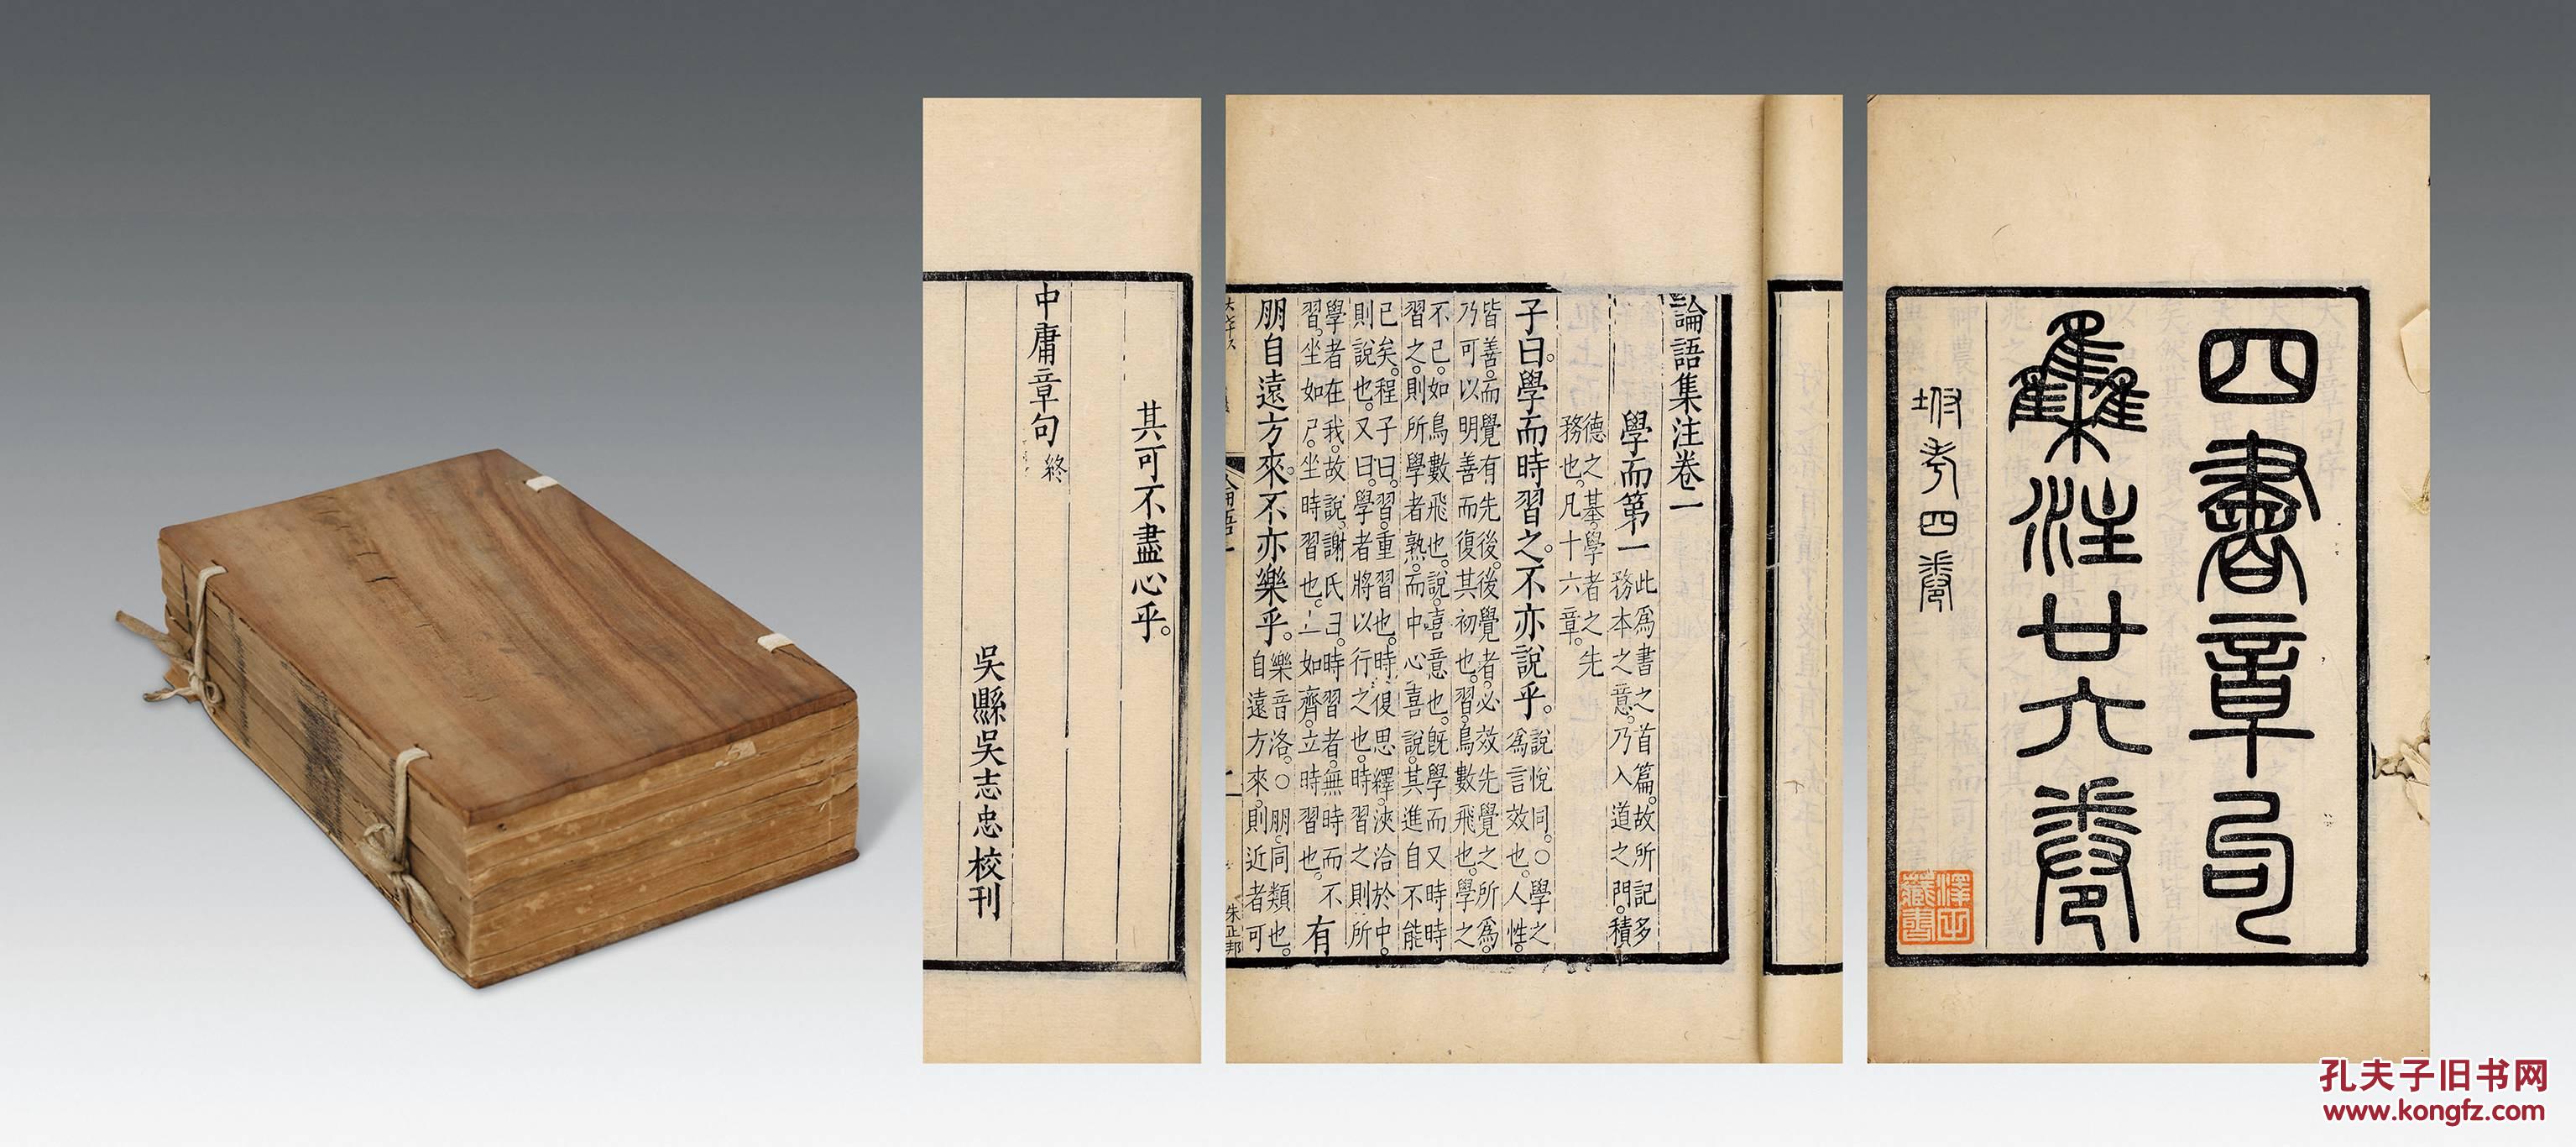 四書章句
集注廿六卷
坿考四卷
藏書
論語集注卷一
學而第一
此爲書之首篇。故所記多
務本之意。乃入道之門。積
德之基。學者之先
務也。凡十六章。
子曰。學而時習之。不亦說乎。
說悅同。○學之
爲言效也。人性
皆善。而覺有先後。後覺者。必效先覺之所爲。
乃可以明善而復其初也。習。鳥數飛也。學之
不已。如鳥數飛也。說。喜意也。旣學而又時時
習之。則所學者熟。而中心喜說。其進自不能
已矣。程子曰。習。重習也。時復思繹。浹洽於中。
則說也。又曰。學者將以行之也。時習之。則所
學者在我。故說。謝氏曰。時習者。無時而不
習。坐如尸。坐時習也。立如齊。立時習也。
有
朋自遠方來。不亦樂乎。
樂音洛。○朋同類也。
自遠方來。則近者可
論語一
朱正邦
其可不盡心乎。
中庸章句終
吳縣吳志忠校刊
孔夫子旧书网
www.kongfz.com